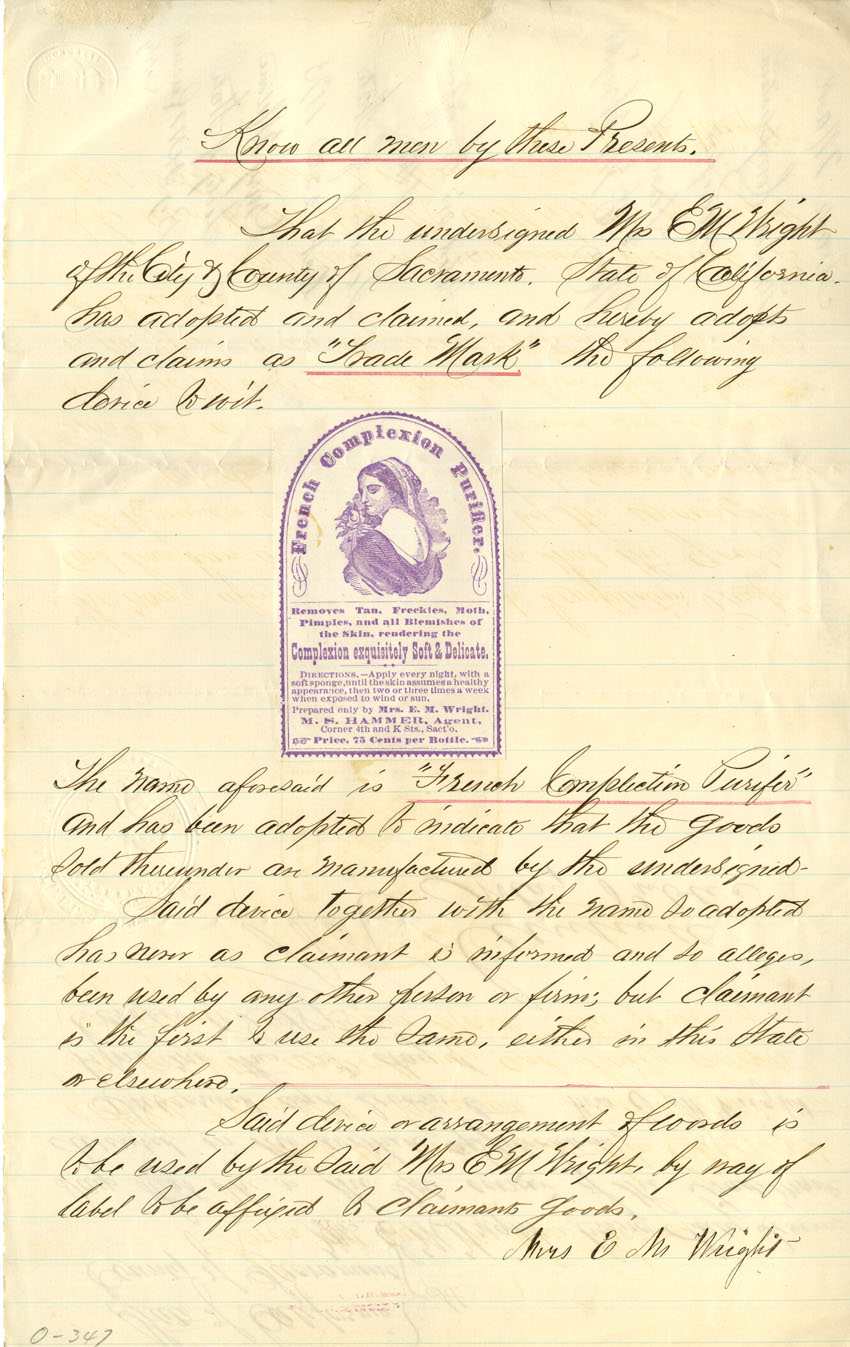 Know all men by these Presents.
That the undersigned Mrs E M Wright
of the City & County of Sacramento. State of California.
has adopted and claimed, and hereby adopts
and claims as "Trade Mark" the following
device to wit.
French Complexion Purifier.
Removes Tan, Freckles, Moth,
Pimples, and all Blemishes of
the Skin, rendering the
Complexion exquisitely Soft & Delicate.
DIRECTIONS.—Apply every night, with a
soft sponge, until the skin assumes a healthy
appearance, then two or three times a week
when exposed to wind or sun.
Prepared only by Mrs. E. M. Wright.
M. S. HAMMER, Agent,
Corner 4th and K Sts., Sact'o.
Price, 75 Cents per Bottle.
The name aforesaid is "French Complection Purifer"
and has been adopted to indicate that the goods
sold thereunder are manufactured by the undersigned-
Said device together with the name so adopted
has never as claimant is informed and so alleges,
been used by any other person or firm; but claimant
is the first to use the same, either in this State
or elsewhere.
Said device or arrangement of words is
to be used by the said Mrs E M Wright, by way of
label to be affixed to claimants goods.
Mrs E M Wright
O-347